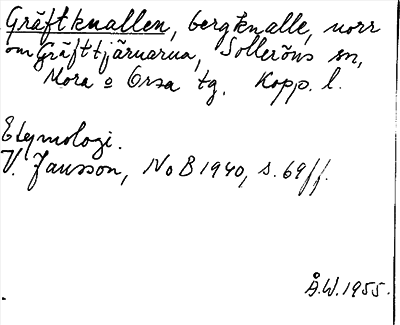 Gräftknallen, bergknalle, norr
om Gräfttjärnarna, Solleröns sn,
Mora o Orsa tg. Kopp. l.
Etymologi.
V. Jansson, NoB 1940, s. 69 ff.
Å.W. 1955.